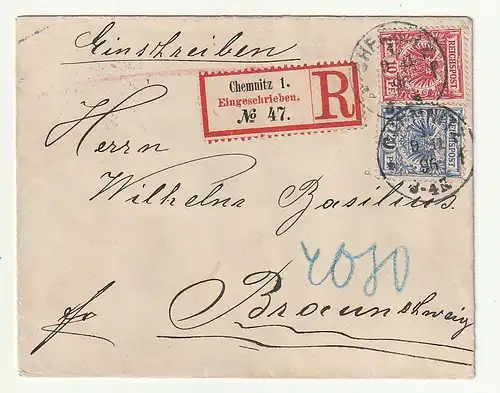 Einschreiben
Chemnitz 1.
Eingeschrieben.
№ 47.
R
REICHSPOST
REICHSPOST
95
3-4N
Herrn
Wilhelm Basilius
4080
fr Braunschweig